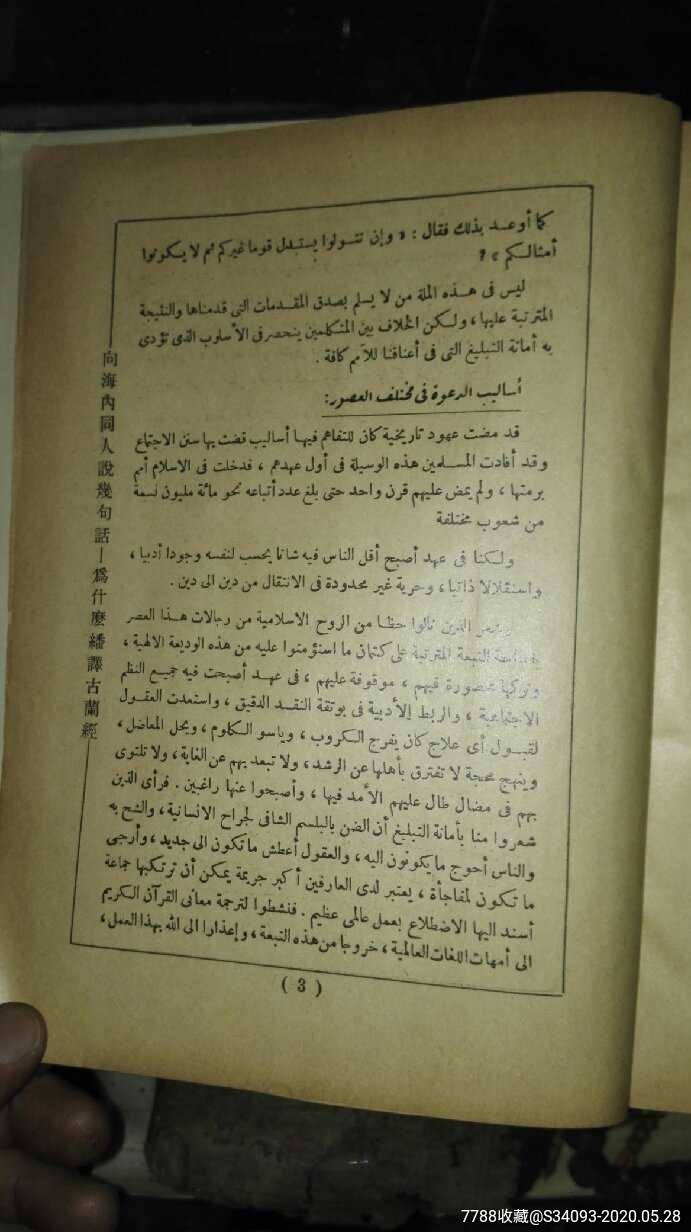 كما أوعد بذلك فقال : « وإن تتولوا يستبدل قوما غيركم ثم لا يكونوا
أمثالكم » ؟
ليس فى هذه الملة من لا يسلم بصدق المقدمات التى قدمناها والنتيجة
المترتبة عليها ، ولكن الخلاف بين المتكلمين ينحصر فى الأسلوب الذى تؤدى
به أمانة التبليغ التى فى أعناقنا للأمم كافة .
أساليب الدعوة فى مختلف العصور :
قد مضت عهود تاريخية كان للتفاهم فيها أساليب قضت بها سنن الاجتماع
وقد أفادت المسلمين هذه الوسيلة فى أول عهدهم ، فدخلت فى الاسلام أمم
برمتها ، ولم يمض عليهم قرن واحد حتى بلغ عدد أتباعه نحو مائة مليون نسمة
من شعوب مختلفة
ولكنا فى عهد أصبح أقل الناس فيه شانا يحسب لنفسه وجودا أدبيا ،
واستقلالا ذاتيا ، وحرية غير محدودة فى الانتقال من دين الى دين .
الذين نالوا حظا من الروح الاسلامية من رجالات هذا العصر
التبعة المترتبة على كتمان ما استؤمنوا عليه من هذه الوديعة الالهية ،
وتركها محصورة فيهم ، موقوفة عليهم ، فى عهد أصبحت فيه جميع النظم
الاجتماعية ، والربط الأدبية فى بوتقة النقد الدقيق ، واستعدت العقول
لقبول أى علاج كان يفرج الكروب ، وياسو الكلوم ، ويحل المعاضل ،
وينهج محجة لا تفترق بأهلها عن الرشد ، ولا تبعد بهم عن الغاية ، ولا تلتوى
بهم فى مضال طال عليهم الأمد فيها ، وأصبحوا عنها راغبين . فرأى الذين
شعروا منا بأمانة التبليغ أن الضن بالبلسم الشافى لجراح الانسانية ، والشح به
والناس أحوج ما يكونون اليه ، والعقول أعطش ما تكون الى جديد ، وأرجى
ما تكون لمفاجأة ، يعتبر لدى العارفين أكبر جريمة يمكن أن ترتكبها جماعة
أسند اليها الاضطلاع بعمل عالمى عظيم . فنشطوا لترجمة معانى القرآن الكريم
الى أمهات اللغات العالمية ، خروجا من هذه التبعة ، وإعذارا الى الله بهذا العمل ،
( 3 )
向海內同人說幾句話—爲什麼繙譯古蘭經
7788收藏@S34093-2020.05.28